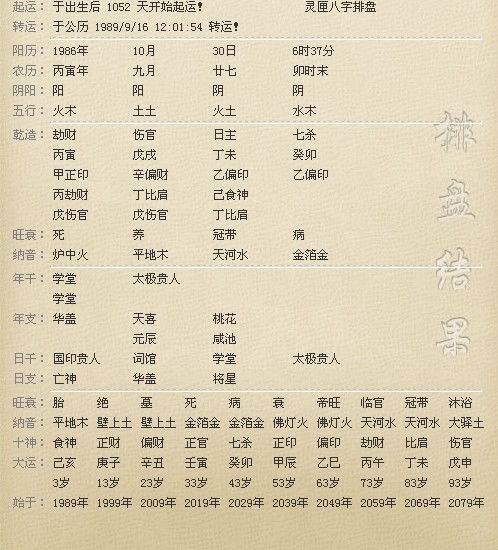 起运： 于出生后 1052 天开始起运！ 灵匣八字排盘
转运： 于公历 1989/9/16 12:01:54 转运！
阳历： 1986年 10月 30日 6时37分
农历： 丙寅年 九月 廿七 卯时末
阴阳： 阳 阳 阴 阴
五行： 火木 土土 火土 水木
乾造： 劫财 伤官 日主 七杀
丙寅 戊戌 丁未 癸卯
甲正印 辛偏财 乙偏印 乙偏印
丙劫财 丁比肩 己食神
戊伤官 戊伤官 丁比肩
旺衰： 死 养 冠带 病
纳音： 炉中火 平地木 天河水 金箔金
年干： 学堂 太极贵人
学堂
年支： 华盖 天喜 桃花
元辰 咸池
日干： 国印贵人 词馆 学堂 太极贵人
日支： 亡神 华盖 将星
旺衰： 胎 绝 墓 死 病 衰 帝旺 临官 冠带 沐浴
纳音： 平地木 壁上土 壁上土 金箔金 金箔金 佛灯火 佛灯火 天河水 天河水 大驿土
十神： 食神 正财 偏财 正官 七杀 正印 偏印 劫财 比肩 伤官
大运： 己亥 庚子 辛丑 壬寅 癸卯 甲辰 乙巳 丙午 丁未 戊申
3岁 13岁 23岁 33岁 43岁 53岁 63岁 73岁 83岁 93岁
始于： 1989年 1999年 2009年 2019年 2029年 2039年 2049年 2059年 2069年 2079年
排盘结果